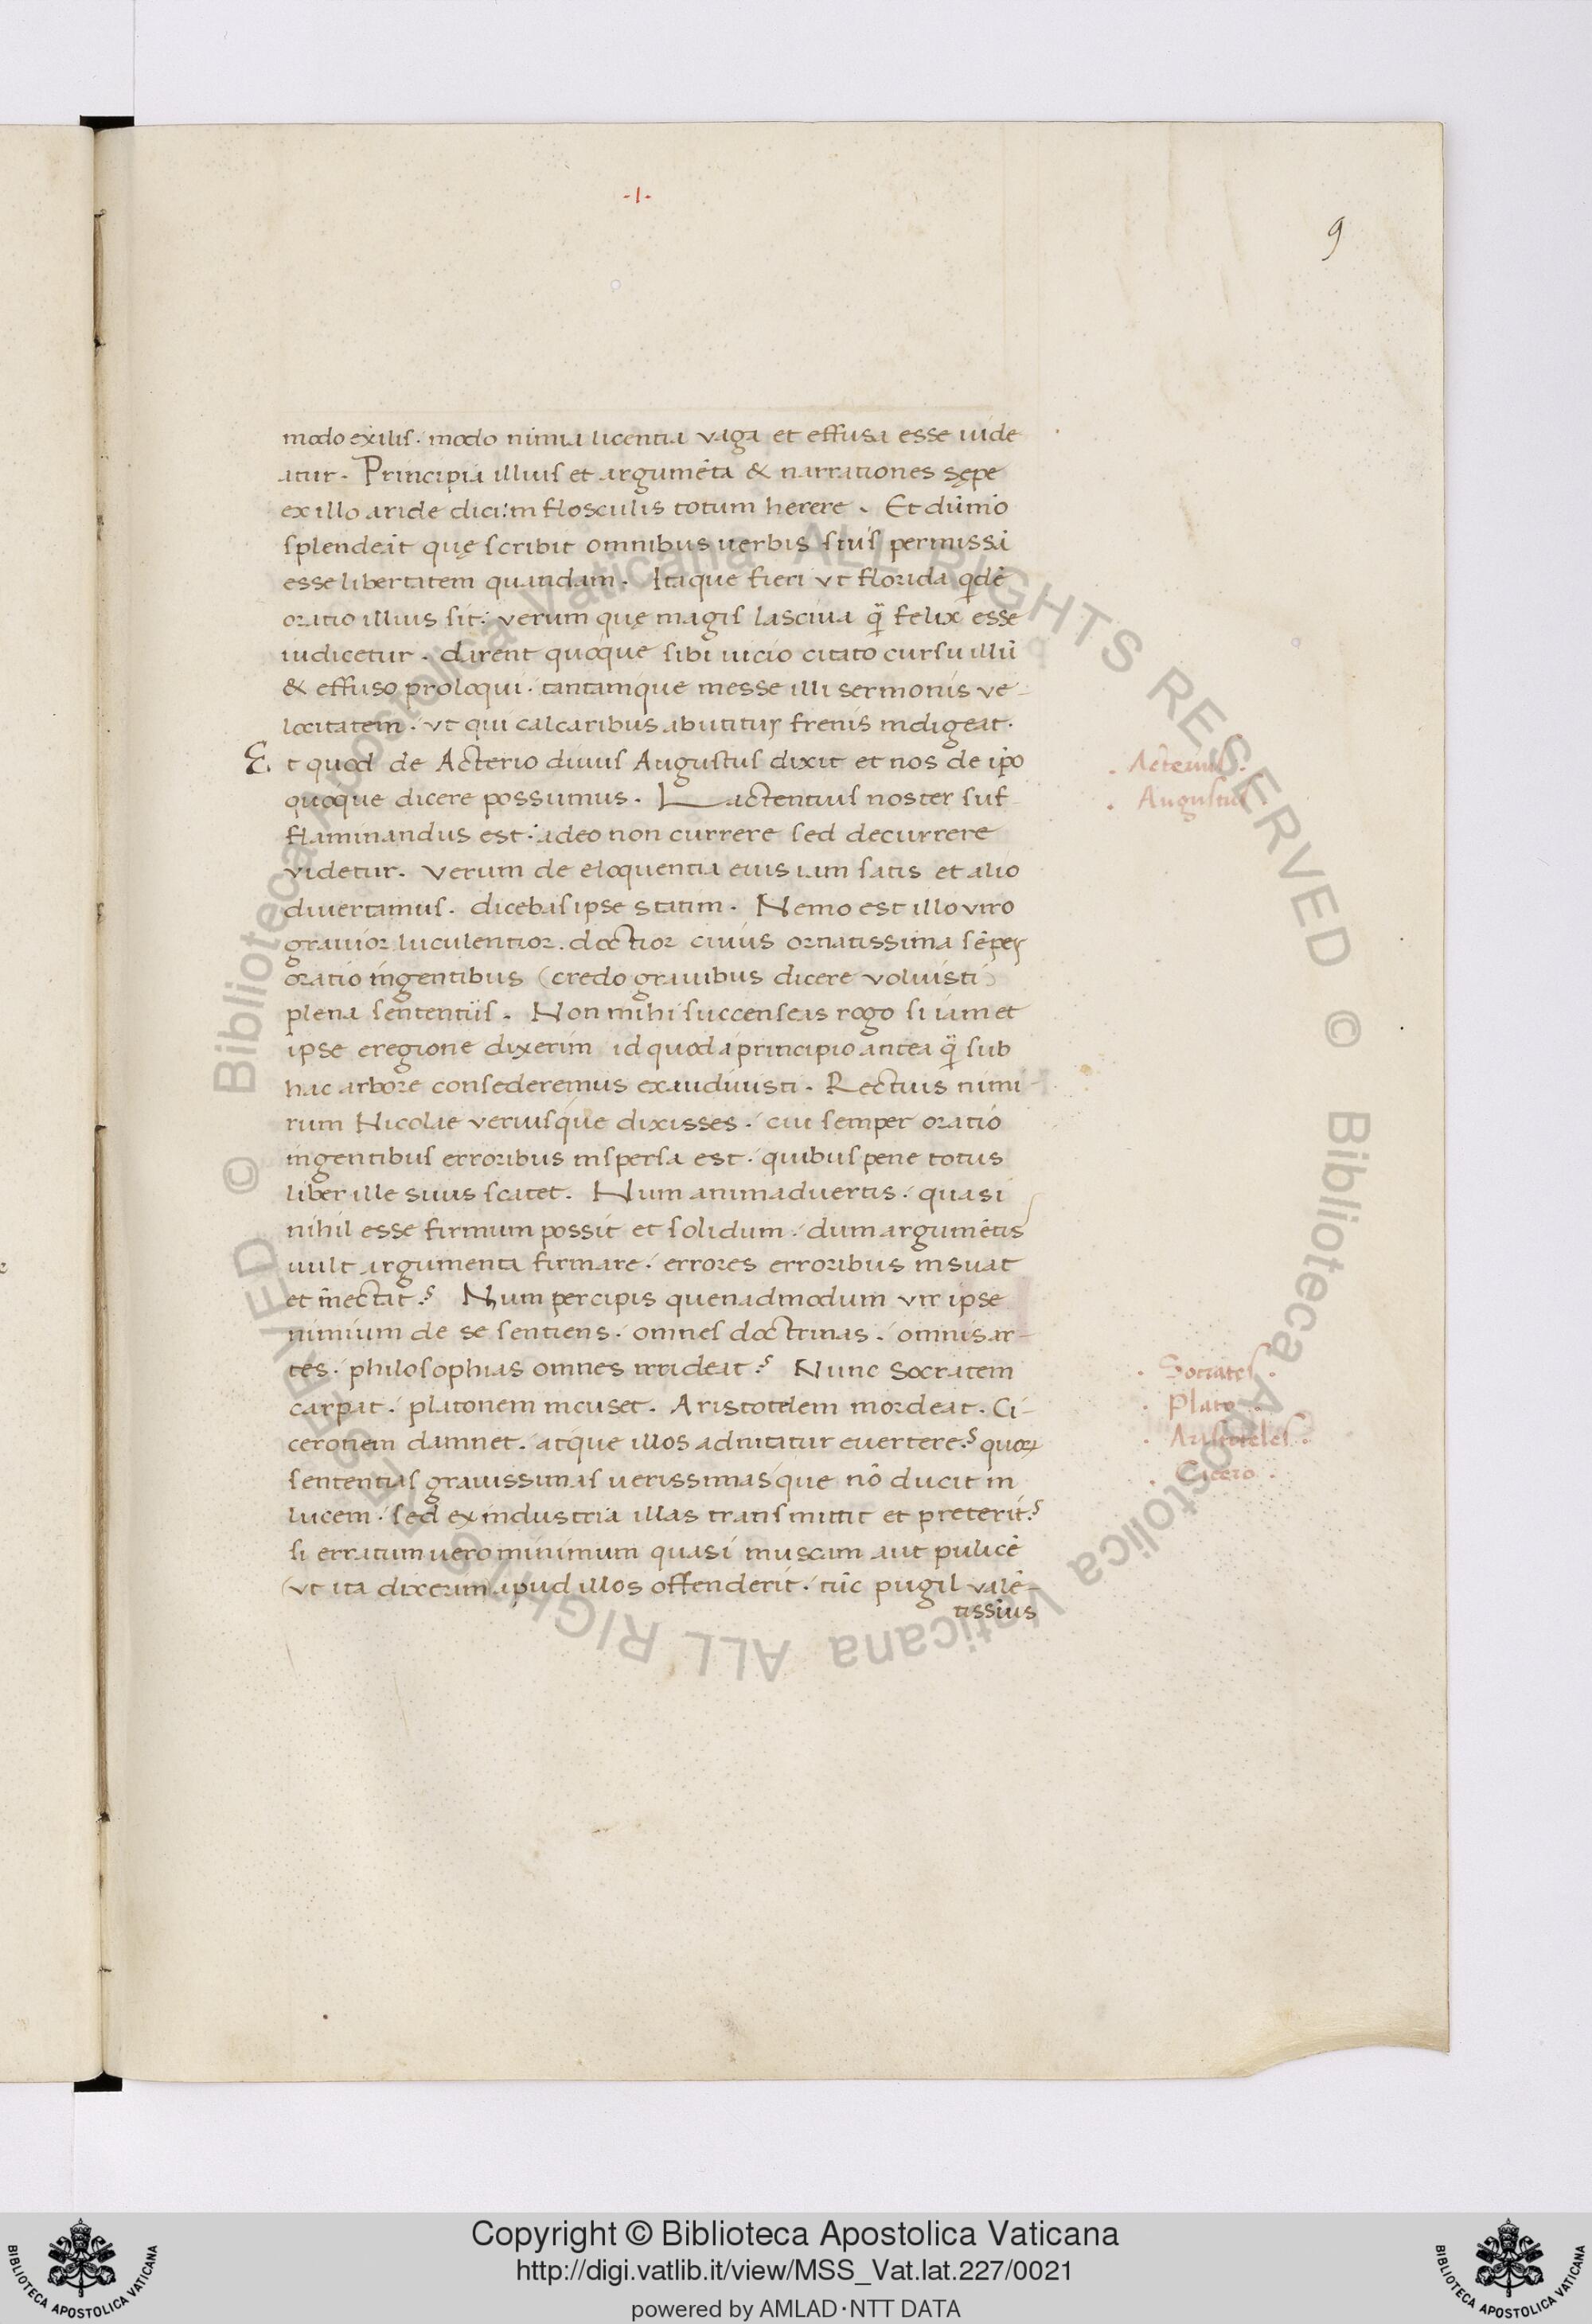 -I-
9
modo exilis · modo nimia licentia vaga et effusa esse uide
atur · Principia illius et argumēta & narrationes sępe
ex illo aride dici: in flosculis totum herere · Et dū nīo
splendeat quę scribit omnibus uerbis suis permissā
esse libertatem quandam · Itaque fieri vt florida qdē
oratio illius sit: verum quę magis lasciua q̄ felix esse
iudicetur · darent quoque sibi uicio citato cursu illū
& effuso proloqui · tantamque inesse illi sermonis ve-
locitatem · vt qui calcaribus abutitur frenis indigeat ·
Et quod de Acterio diuus Augustus dixit et nos de ipo
quoque dicere possumus · Lactentius noster suf
flaminandus est · adeo non currere sed decurrere
videtur · verum de eloquentia eius iam satis et alio
divertamus · dicebas ipse statim · Nemo est illo viro
grauior luculentior · doctior cuius ornatissima sēper
oratio ingentibus (credo grauibus dicere voluisti)
plena sententiis · Non mihi succenseas rogo si iam et
ipse eregione dixerim id quod a principio antea q̄ sub
hac arbore consederemus exaudiuisti · Rectius nimi-
rum Nicolae veriusque dixisses · cui semper oratio
ingentibus erroribus inspersa est · quibus pene totus
liber ille suus scatet · Num animadvertis · quasi
nihil esse firmum possit et solidum · dum argumētis
uult argumenta firmare · errores erroribus insuat
et īnectat? Num percipis quenadmodum vir ipse
nimium de se sentiens · omnes doctrinas · omnis ar-
tes · philosophias omnes irrideat? Nunc Socratem
carpat · platonem incuset · Aristotelem mordeat · Ci-
ceronem damnet · atque illos adnitatur euertere? quoꝝ
sententias grauissimas uerissimasque nō ducit in
lucem · sed ex industria illas transmittit et preterit?
si erratum uero minimum quasi muscam aut pulicē
(vt ita dixerim) apud illos offenderit · tūc pugil valē-
tissius
· Acterius ·
· Augustus
· Socrates ·
· Plato ·
· Aristoteles ·
· Cicero ·
© Biblioteca Apostolica Vaticana ALL RIGHTS RESERVED © Biblioteca Apostolica Vaticana ALL RIGHTS RESERVED
Copyright © Biblioteca Apostolica Vaticana
http://digi.vatlib.it/view/MSS_Vat.lat.227/0021
powered by AMLAD·NTT DATA
BIBLIOTECA APOSTOLICA VATICANA
BIBLIOTECA APOSTOLICA VATICANA